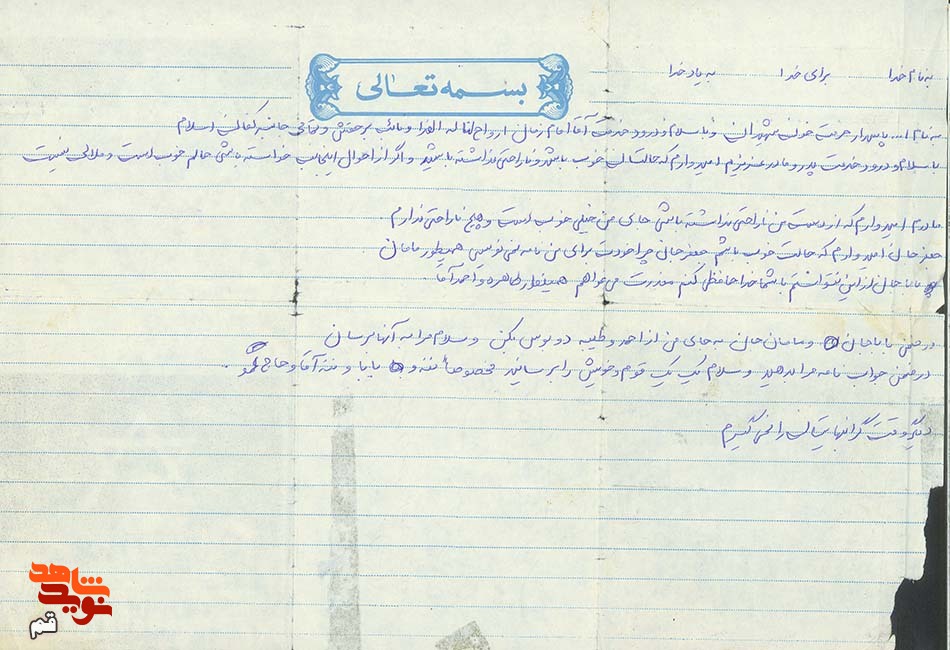 بسمه تعالی
به نام خدا برای خدا به یاد خدا
به نام ا... پاسدار حرمت خون شهیدان و با سلام و درود خدمت آقا امام زمان ارواحنا له الفدا و نائب برحقش
با سلام و درود خدمت پدر و مادر عزیزم امیدوارم که حالتان خوب باشد و ناراحتی نداشته باشید و اگر از احوال اینجانب خواسته باشی حالم خوب است و ملالی نیست
مادرم امیدوارم که از دست من ناراحتی نداشته باشی جای من خیلی خوب است و هیچ ناراحتی ندارم.
جعفر جان امیدوارم که حالت خوب باشد جعفر جان چرا خودت برای من نامه نمی نویسی همینطور مامان
بابا جان از این نتوانستم با شما خداحافظی کنم معذرت می خواهم همینطور طاهره و احمد آقا.
در ضمن بابا جان و مامان جان به جای من از احمد و طیبه دو بوس بکن و سلام مرا به آنها برسان
در ضمن جواب نامه مرا بدهید و سلام تک تک قوم و خویش را برسانید مخصوصاً ننه و بابا و ننه آقا و حاج عمو.
دیگر وقت گرانبهایتان را نمی گیرم
نوید شاهد
قم